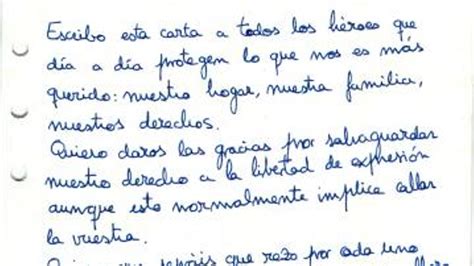 Escribo esta carta a todos los héroes que
día a día protegen lo que nos es más
querido: nuestro hogar, nuestra familia,
nuestros derechos.
Quiero daros las gracias por salvaguardar
nuestro derecho a la libertad de expresión
aunque esto normalmente implica callar
la vuestra.
que rezo por cada uno